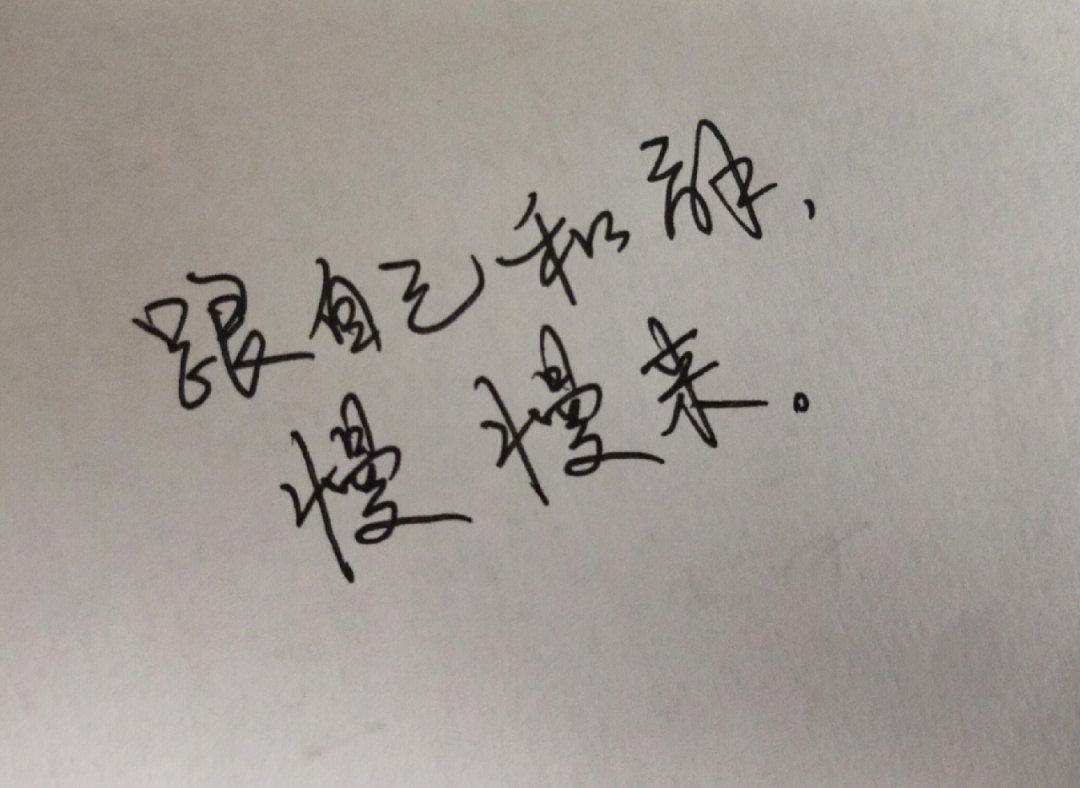 跟自己和解，
慢慢来。